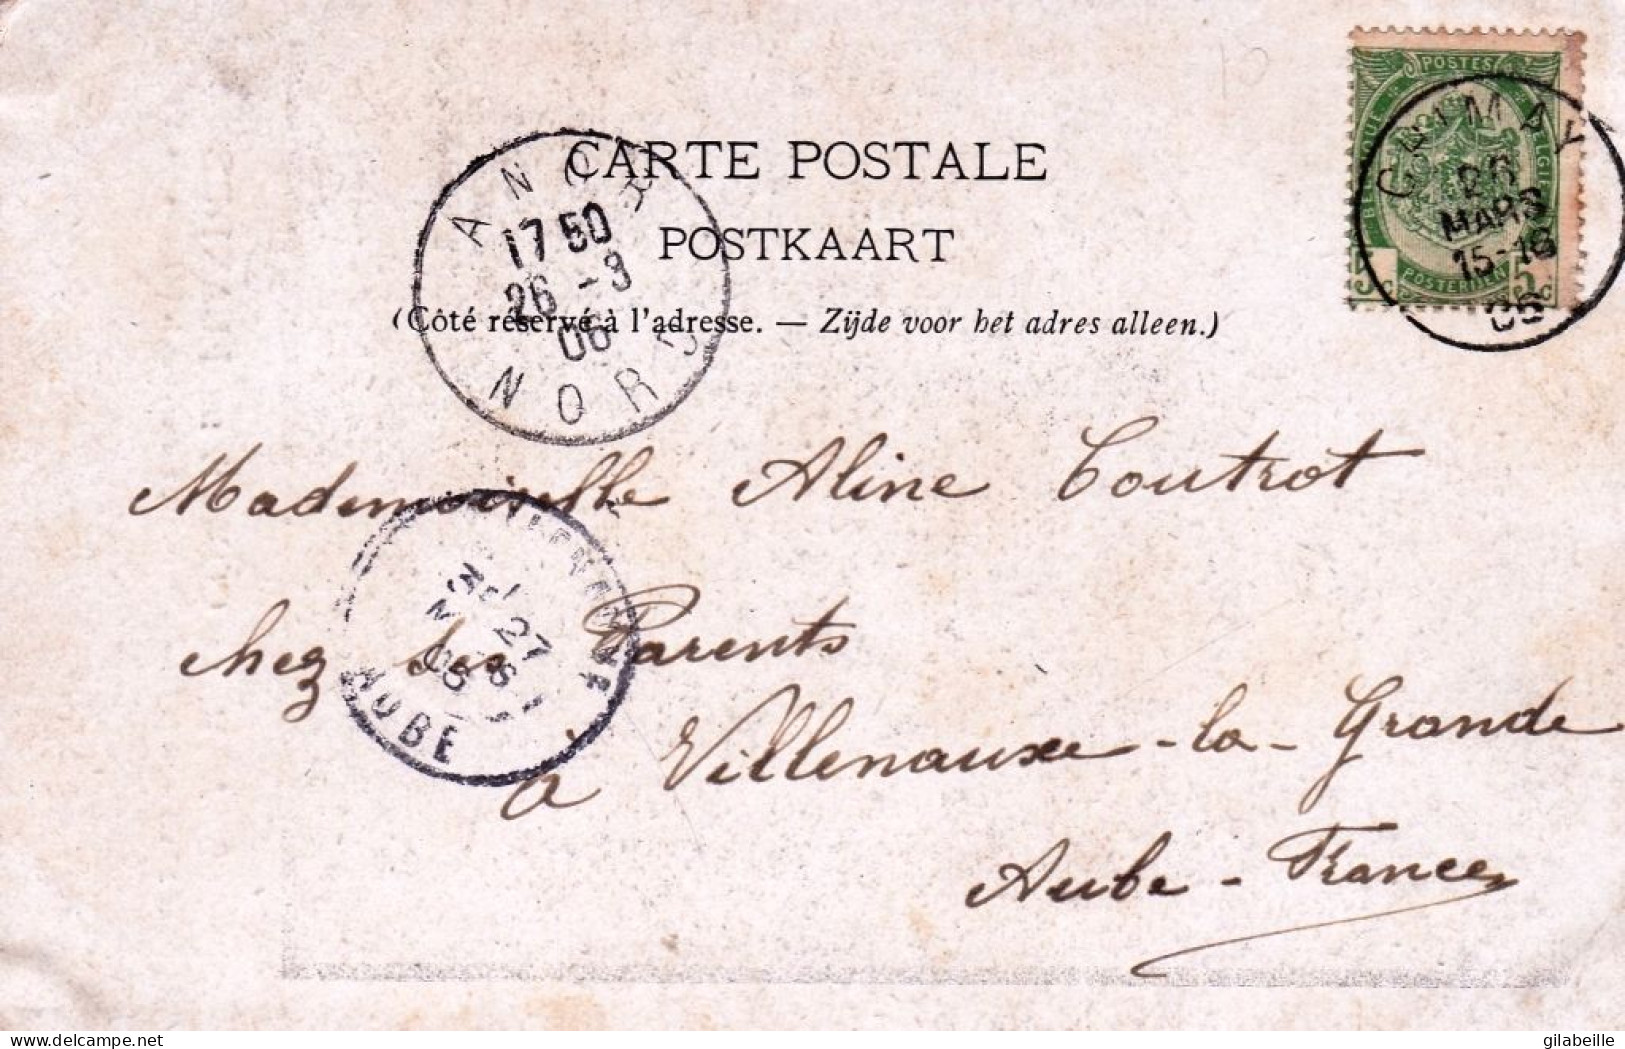 POSTES
BELGIQUE
BELGIE
POSTERIJEN
5c
5c
CHIMAY
26
MARS
15-16
CARTE POSTALE
POSTKAART
(Côté réservé à l'adresse. — Zijde voor het adres alleen.)
ANOR
17 50
26 -3
06
NORD
Mademoiselle Aline Coutrot
chez ses Parents
à Villenauxe-la-Grande
Aube - France
27
AUBE
delcampe.net
gilabeille